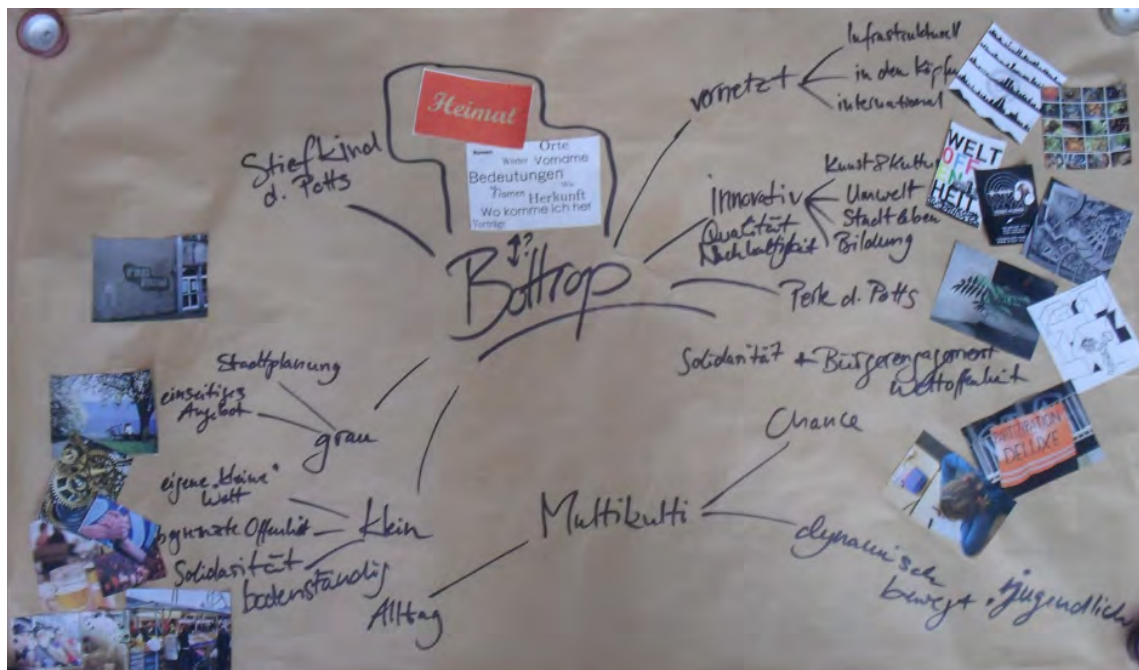 Heimat
Orte
Wörter Vorname
Bedeutungen
Namen Wie
Herkunft
Wo komme ich her
Vorträge
↕?
Bottrop
Stiefkind
d. Potts
vernetzt
Infrastrukturell
in den Köpfen
international
innovativ
Qualität
Nachhaltigkeit
Kunst & Kultur
Umwelt
Stadtleben
Bildung
WELT
OFF
EN
HEIT
Perle d. Potts
Solidarität + Bürgerengagement
Weltoffenheit
PARTIZIPATION
DELUXE
Stadtplanung
einseitiges
Angebot
grau
eigene "kleine"
Welt
begrenzte Offenheit
Solidarität
bodenständig
klein
Multikulti
Chance
dynamisch
bewegt, jugendlich
Alltag